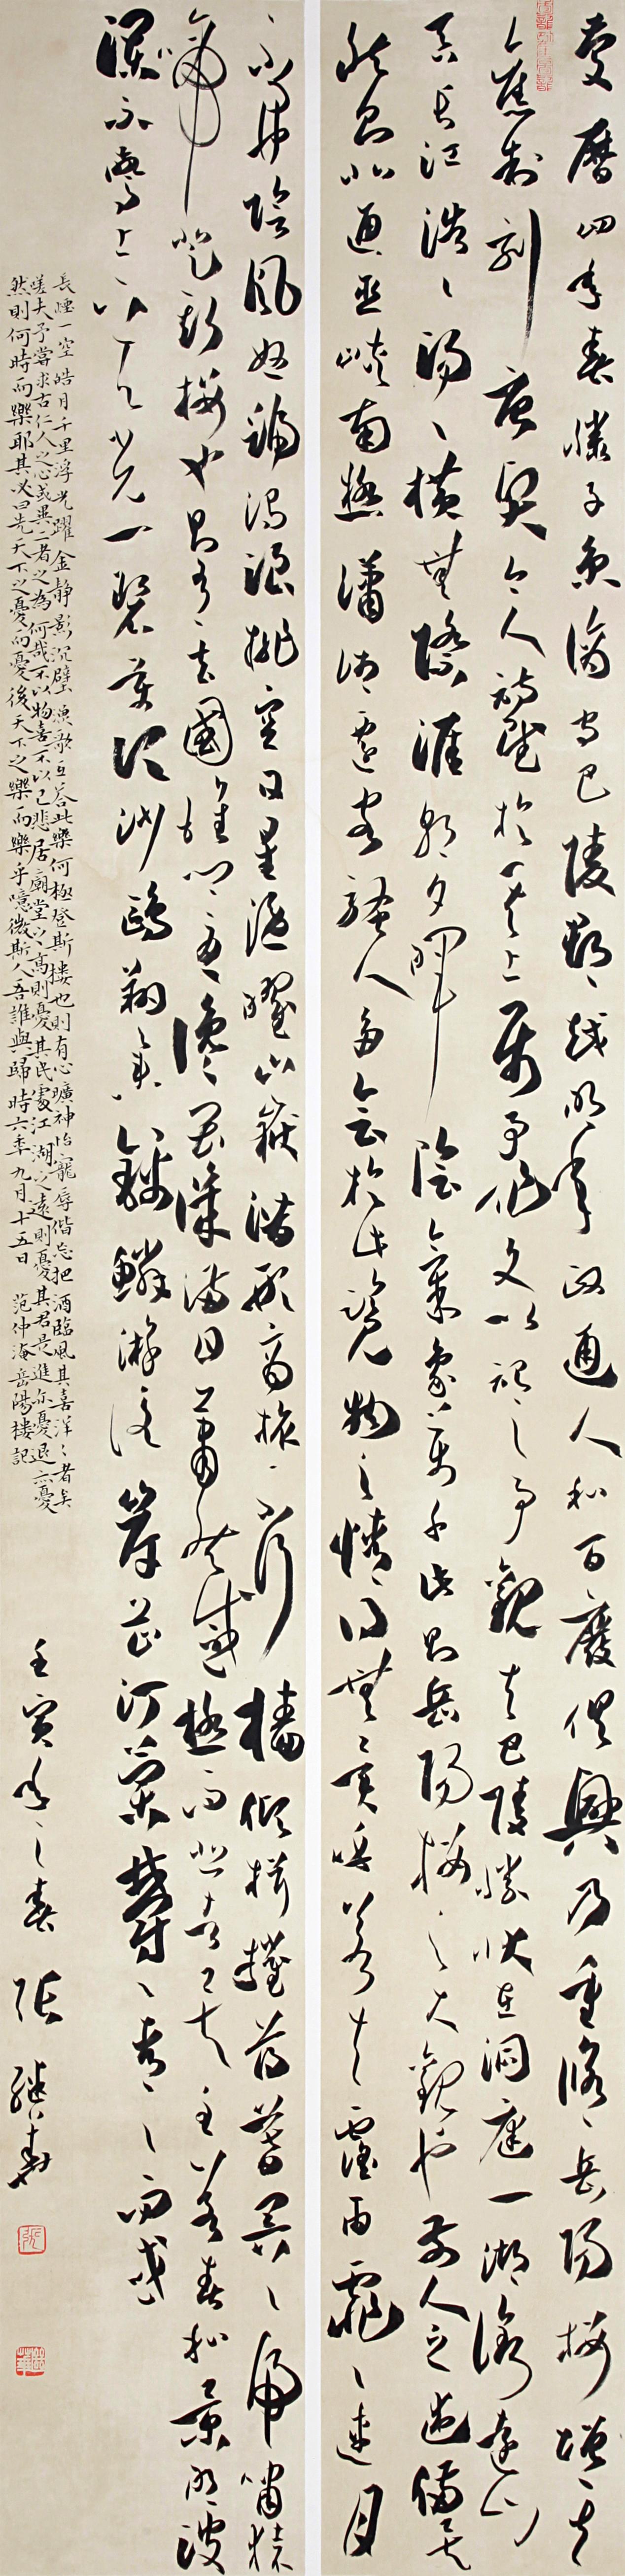 慶曆四年春滕子京謫守巴陵郡越明年政通人和百廢俱興乃重修岳陽樓增其
舊制刻唐賢今人詩賦於其上屬予作文以記之予觀夫巴陵勝狀在洞庭一湖銜遠山
吞長江浩浩湯湯橫無際涯朝夕暉陰氣象萬千此則岳陽樓之大觀也前人之述備矣
然則北通巫峽南極瀟湘遷客騷人多會於此覽物之情得無異乎若夫霪雨霏霏連月
不開陰風怒號濁浪排空日星隱曜山嶽潛形商旅不行檣傾楫摧薄暮冥冥虎嘯猿
啼登斯樓也則有去國懷鄉憂讒畏譏滿目蕭然感極而悲者矣至若春和景明波
瀾不驚上下天光一碧萬頃沙鷗翔集錦鱗游泳岸芷汀蘭郁郁青青而或
長煙一空皓月千里浮光躍金靜影沉璧漁歌互答此樂何極登斯樓也則有心曠神怡寵辱偕忘把酒臨風其喜洋洋者矣
嗟夫予嘗求古仁人之心或異二者之為何哉不以物喜不以己悲居廟堂之高則憂其民處江湖之遠則憂其君是進亦憂退亦憂
然則何時而樂耶其必曰先天下之憂而憂後天下之樂而樂乎噫微斯人吾誰與歸時六年九月十五日 范仲淹岳陽樓記
壬寅年之春 張繼春